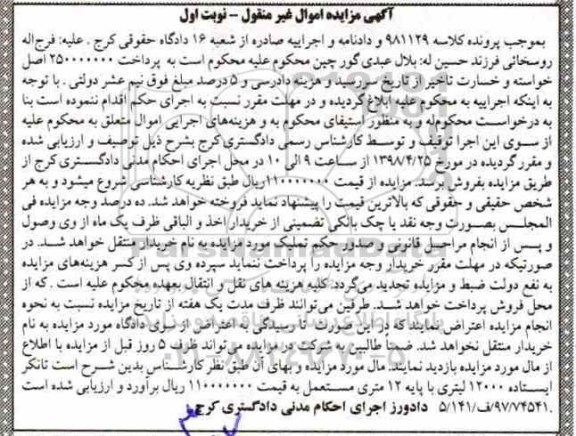 آگهی مزایده اموال غیر منقول – نوبت اول
بموجب پرونده کلاسه ۹۸۱۱۲۹ و دادنامه و اجراییه صادره از شعبه ۱۶ دادگاه حقوقی کرج . علیه: فرج‌اله
روسخانی فرزند حسین له: بلال عبدی گور چین محکوم علیه محکوم است به پرداخت ۲۵۰۰۰۰۰۰۰ اصل
خواسته و خسارت تاخیر از تاریخ سررسید و هزینه دادرسی و ۵ درصد مبلغ فوق نیم عشر دولتی . با توجه
به اینکه اجراییه به محکوم علیه ابلاغ گردیده و در مهلت مقرر نسبت به اجرای حکم اقدام ننموده است بنا
به درخواست محکوم‌له و به منظور استیفای محکوم به و هزینه‌های اجرایی اموال متعلق به محکوم علیه
از سوی این اجرا توقیف و توسط کارشناس رسمی دادگستری کرج بشرح ذیل توصیف و ارزیابی شده
و مقرر گردیده در مورخ ۱۳۹۸/۴/۲۵ از ساعت ۹ الی ۱۰ در محل اجرای احکام مدنی دادگستری کرج از
طریق مزایده بفروش برسد. مزایده از قیمت ۱۱۰۰۰۰۰۰۰ریال طبق نظریه کارشناسی شروع میشود و به هر
شخص حقیقی و حقوقی که بالاترین قیمت را پیشنهاد نماید فروخته خواهد شد. ده درصد وجه مزایده فی
المجلس بصورت وجه نقد یا چک بانکی تضمینی از خریدار اخذ و الباقی ظرف یک ماه از وی وصول
و پس از انجام مراحل قانونی و صدور حکم تملیک مورد مزایده به نام خریدار منتقل خواهد شد. در
صورتیکه در مهلت مقرر خریدار وجه مزایده را پرداخت ننماید سپرده وی پس از کسر هزینه‌های مزایده
به نفع دولت ضبط و مزایده تجدید می‌گردد. کلیه هزینه های نقل و انتقال بعهده محکوم علیه است . که از
محل فروش پرداخت خواهد شد. طرفین می‌توانند ظرف مدت یک هفته از تاریخ مزایده نسبت به نحوه
انجام مزایده اعتراض نمایند که در این صورت تا رسیدگی به اعتراض از سوی دادگاه مورد مزایده به نام
خریدار منتقل نخواهد شد. ضمناً طالبین به شرکت در مزایده می‌تواند ظرف ۵ روز قبل از مزایده با اطلاع
از مال مورد مزایده بازدید نمایند. مال مورد مزایده و بهای آن طبق نظر کارشناسی بدین شرح است تانکر
ایستاده ۱۲۰۰۰ لیتری با پایه ۱۲ متری مستعمل به قیمت ۱۱۰۰۰۰۰۰۰ ریال برآورد و ارزیابی شده است
.۹۷/۷۴۵۴۱/ف/۵/۱۴۱ دادورز اجرای احکام مدنی دادگستری کرج